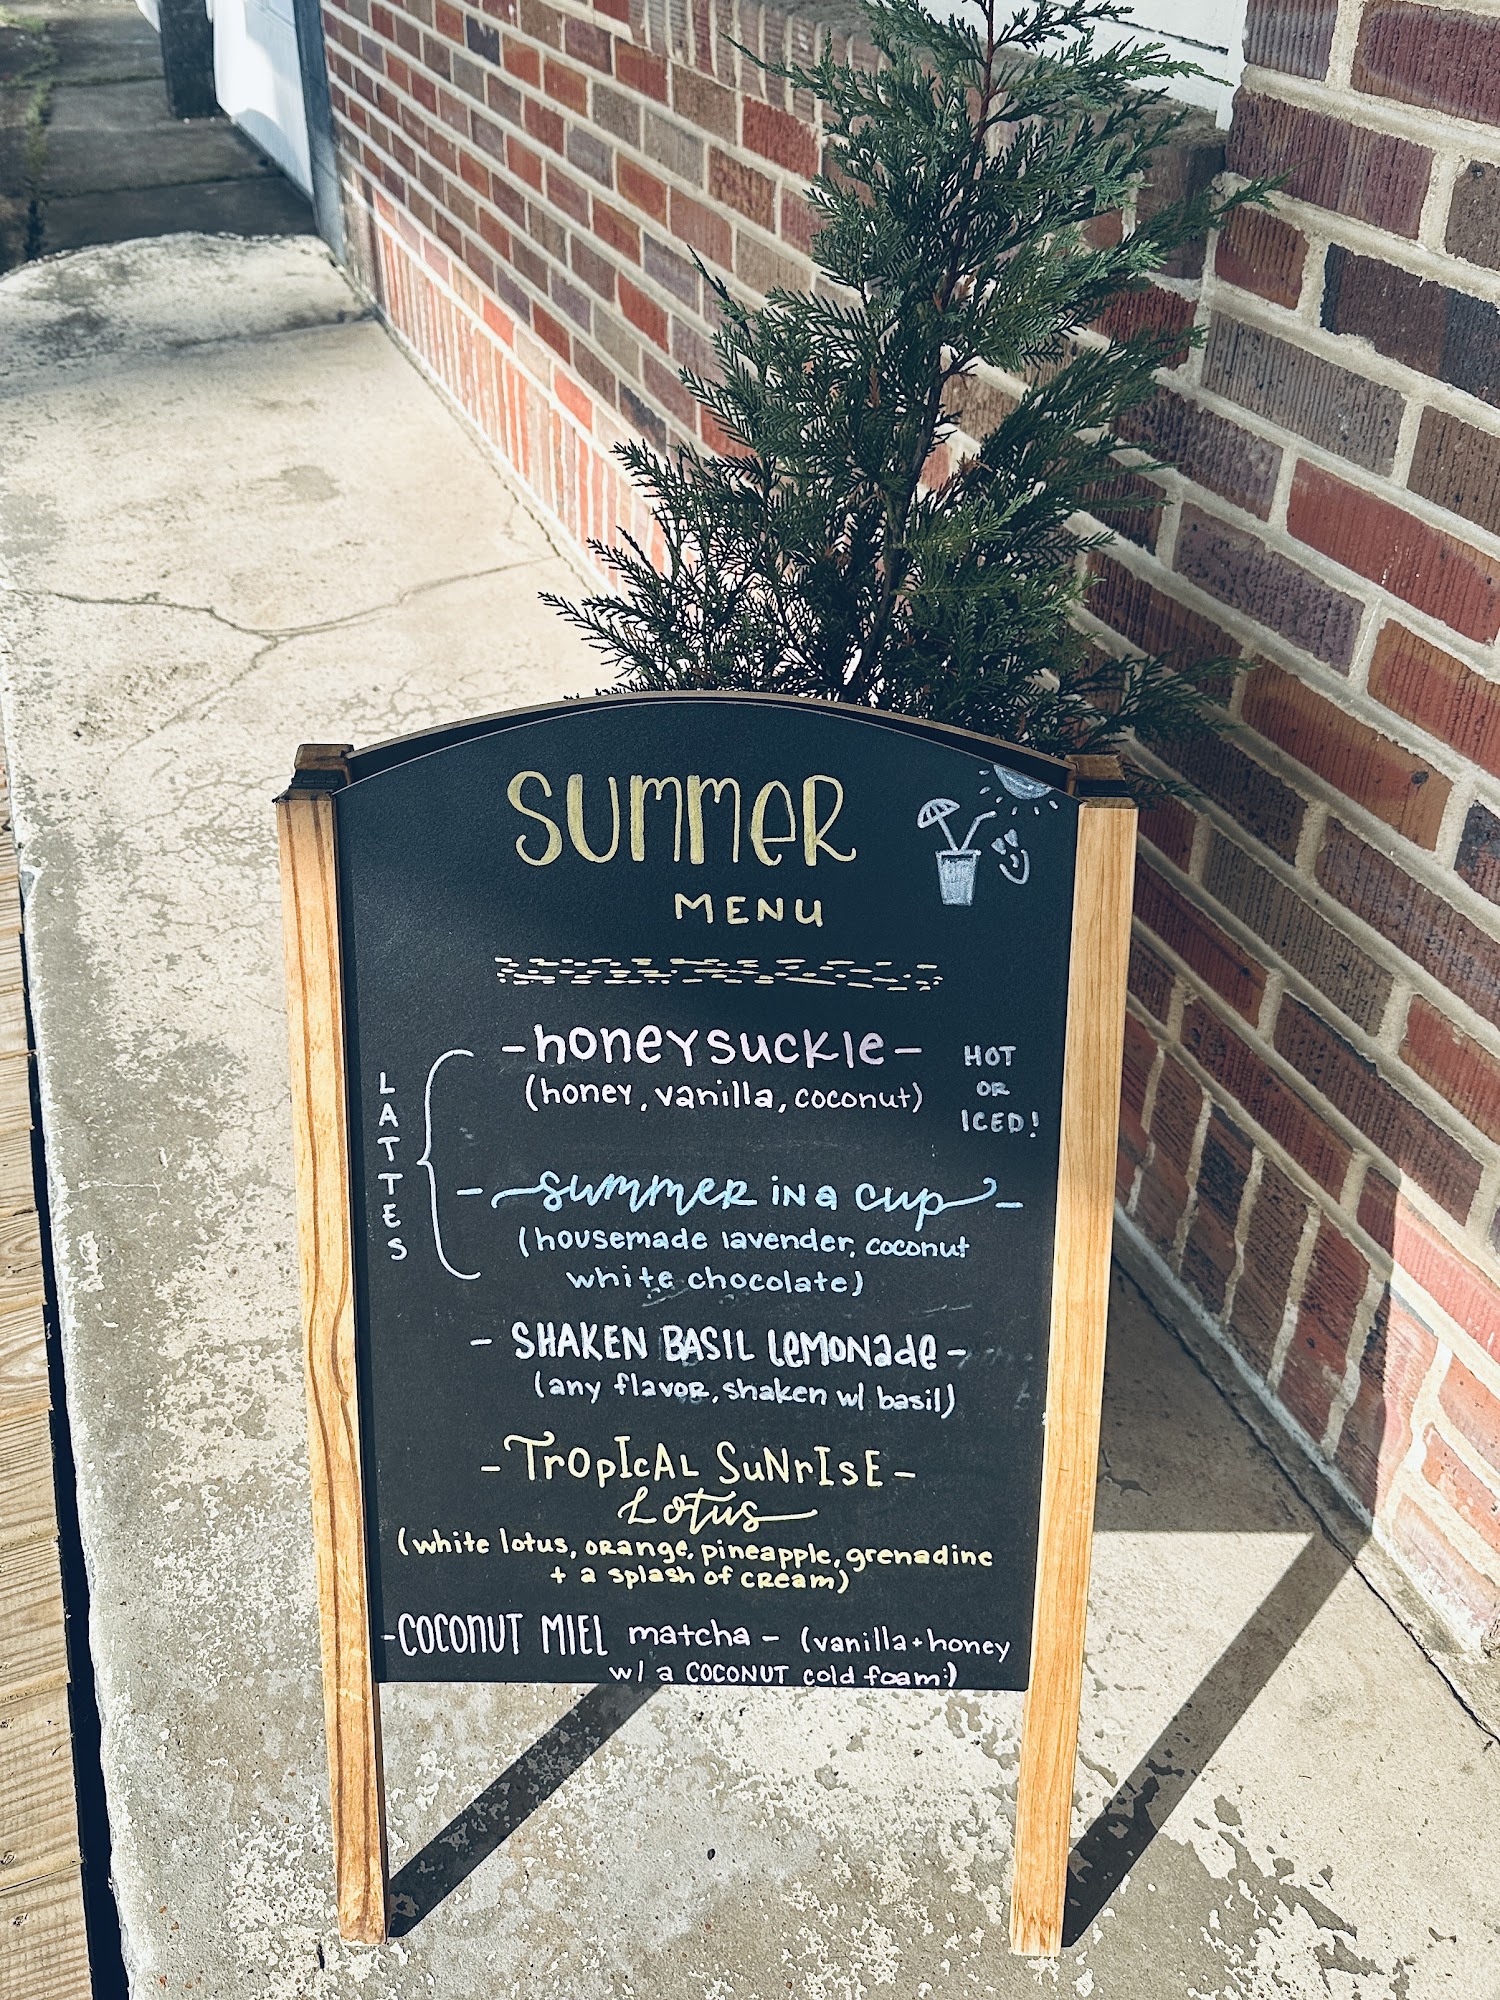 SUMMER
MENU
LATTES
-honeysuckle-
(honey, vanilla, coconut)
HOT
OR
ICED!
-summer in a cup-
(housemade lavender, coconut
white chocolate)
- SHAKEN BASIL LEMONade -
(any flavor, shaken w/ basil)
- TrOpIcAL SuNrIsE -
Lotus
(white lotus, orange, pineapple, grenadine
+ a splash of cream)
-COCONUT MIEL matcha - (vanilla + honey
w/ a COCONUT cold foam:)